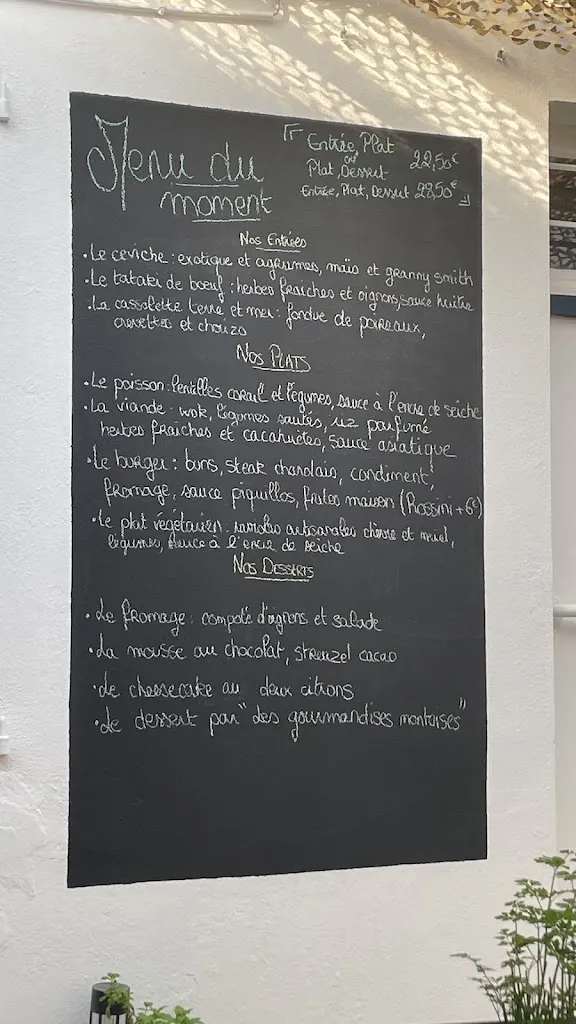 Menu du
moment
Entrée, Plat
ou
Plat, Dessert 22,50€
Entrée, Plat, Dessert 28,50€
Nos Entrées
• Le ceviche : exotique et agrumes, maïs et granny smith
• Le tataki de boeuf : herbes fraiches et oignons, sauce huitre
• La cassolette terre et mer : fondue de poireaux,
crevettes et chorizo
Nos PLATS
• Le poisson : lentilles corail et légumes, sauce à l'encre de seiche
• La viande : wok, légumes sautés, riz parfumé
herbes fraiches et cacahuètes, sauce asiatique
• Le burger : buns, steak charolais, condiment,
fromage, sauce piquillos, frites maison (Rossini +6€)
• Le plat végétarien : ravioles artisanales chèvre et miel,
légumes, sauce à l'encre de seiche
Nos DESSERTS
• Le fromage : compoté d'oignons et salade
• La mousse au chocolat, streuzel cacao
• Le cheesecake au deux citrons
• Le dessert par "des gourmandises montoises"